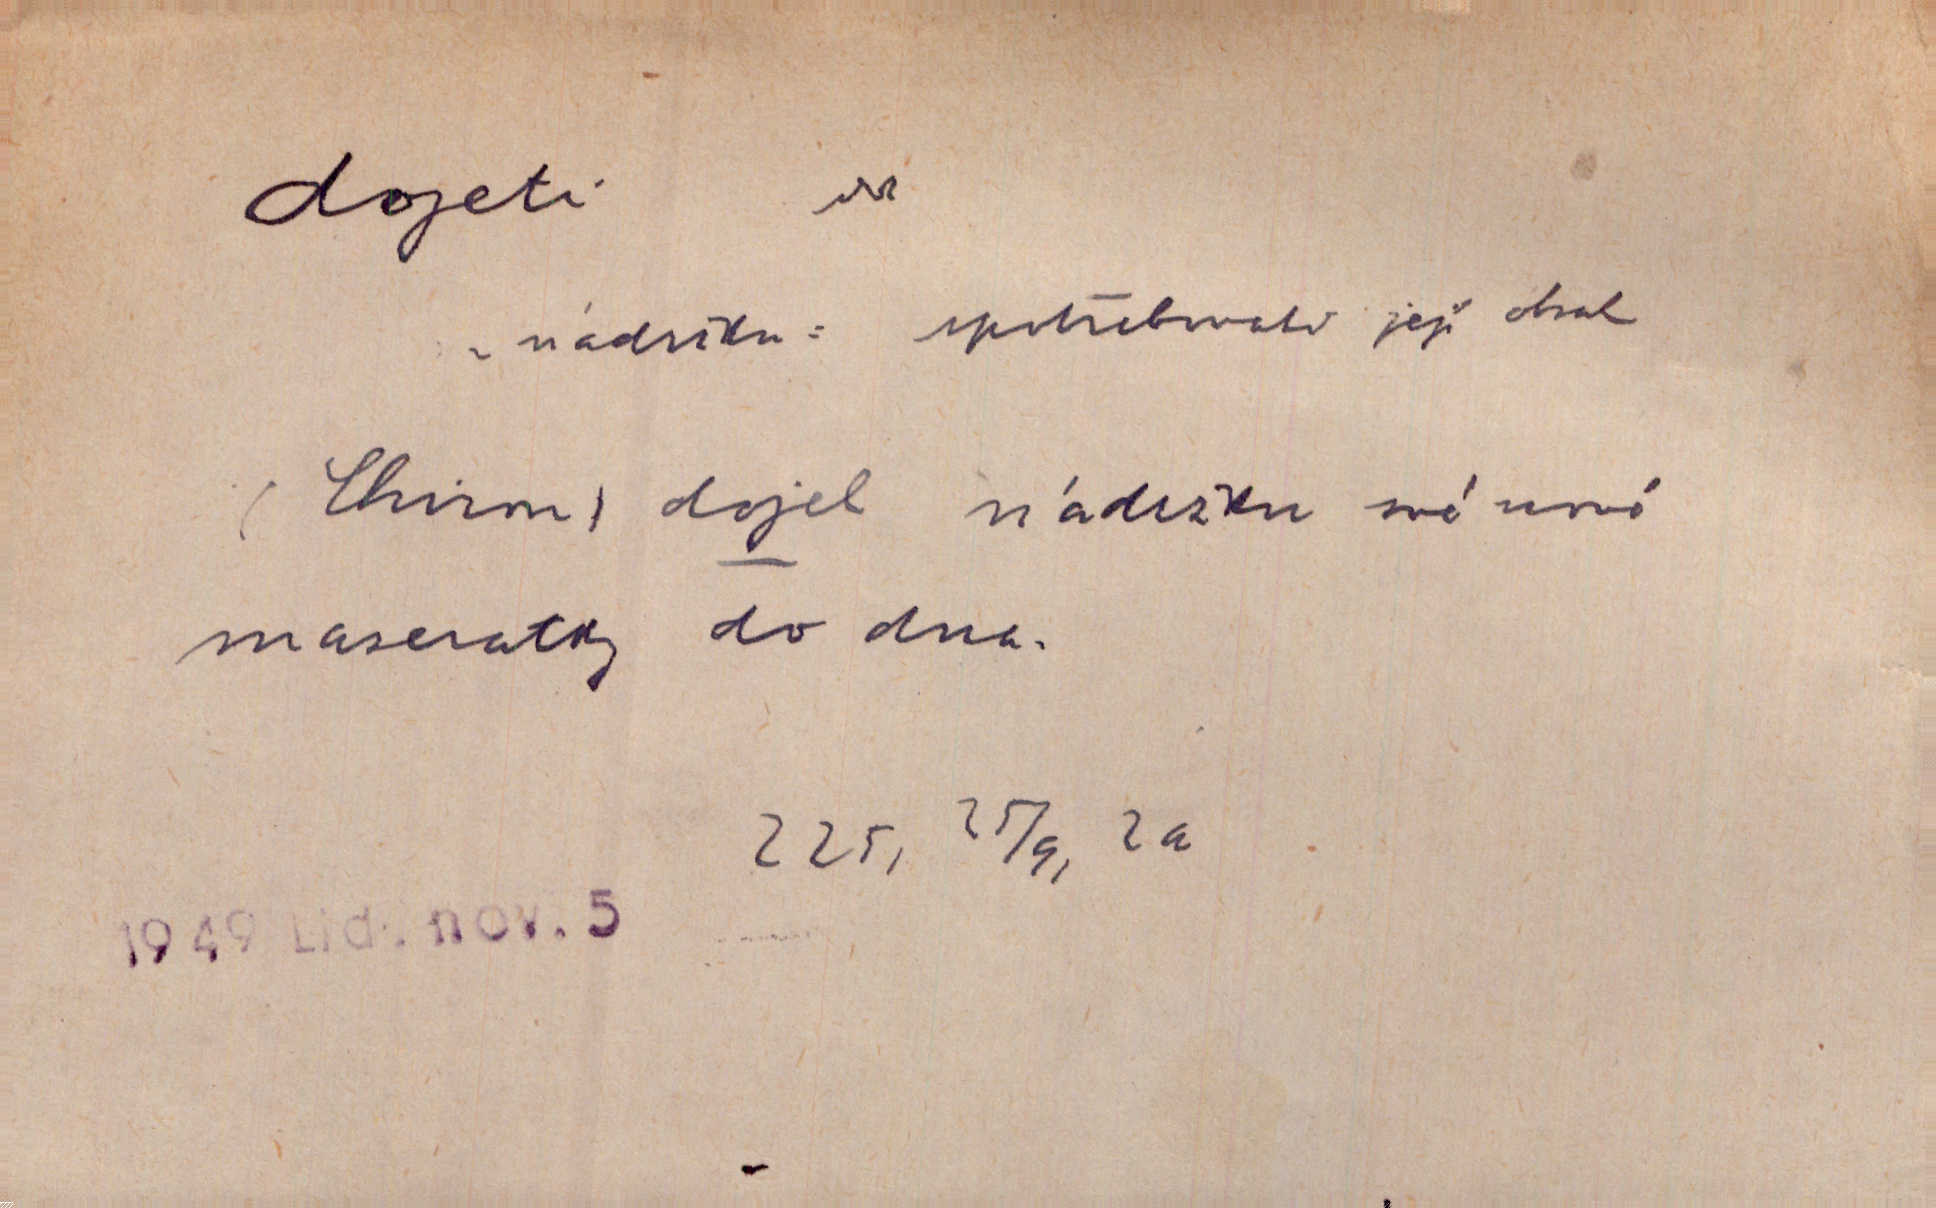 dojeti
~ nádržku: spotřebovati její obsah
(Chiron) dojel nádržku své nové
maseratky do dna.
225, 25/9, 2a
1949 Lid. nov. 5